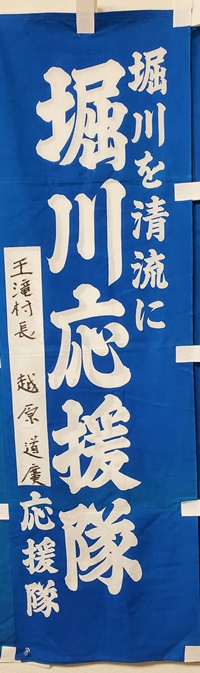 堀川を清流に
堀川応援隊
王滝村長 越原道廣 応援隊